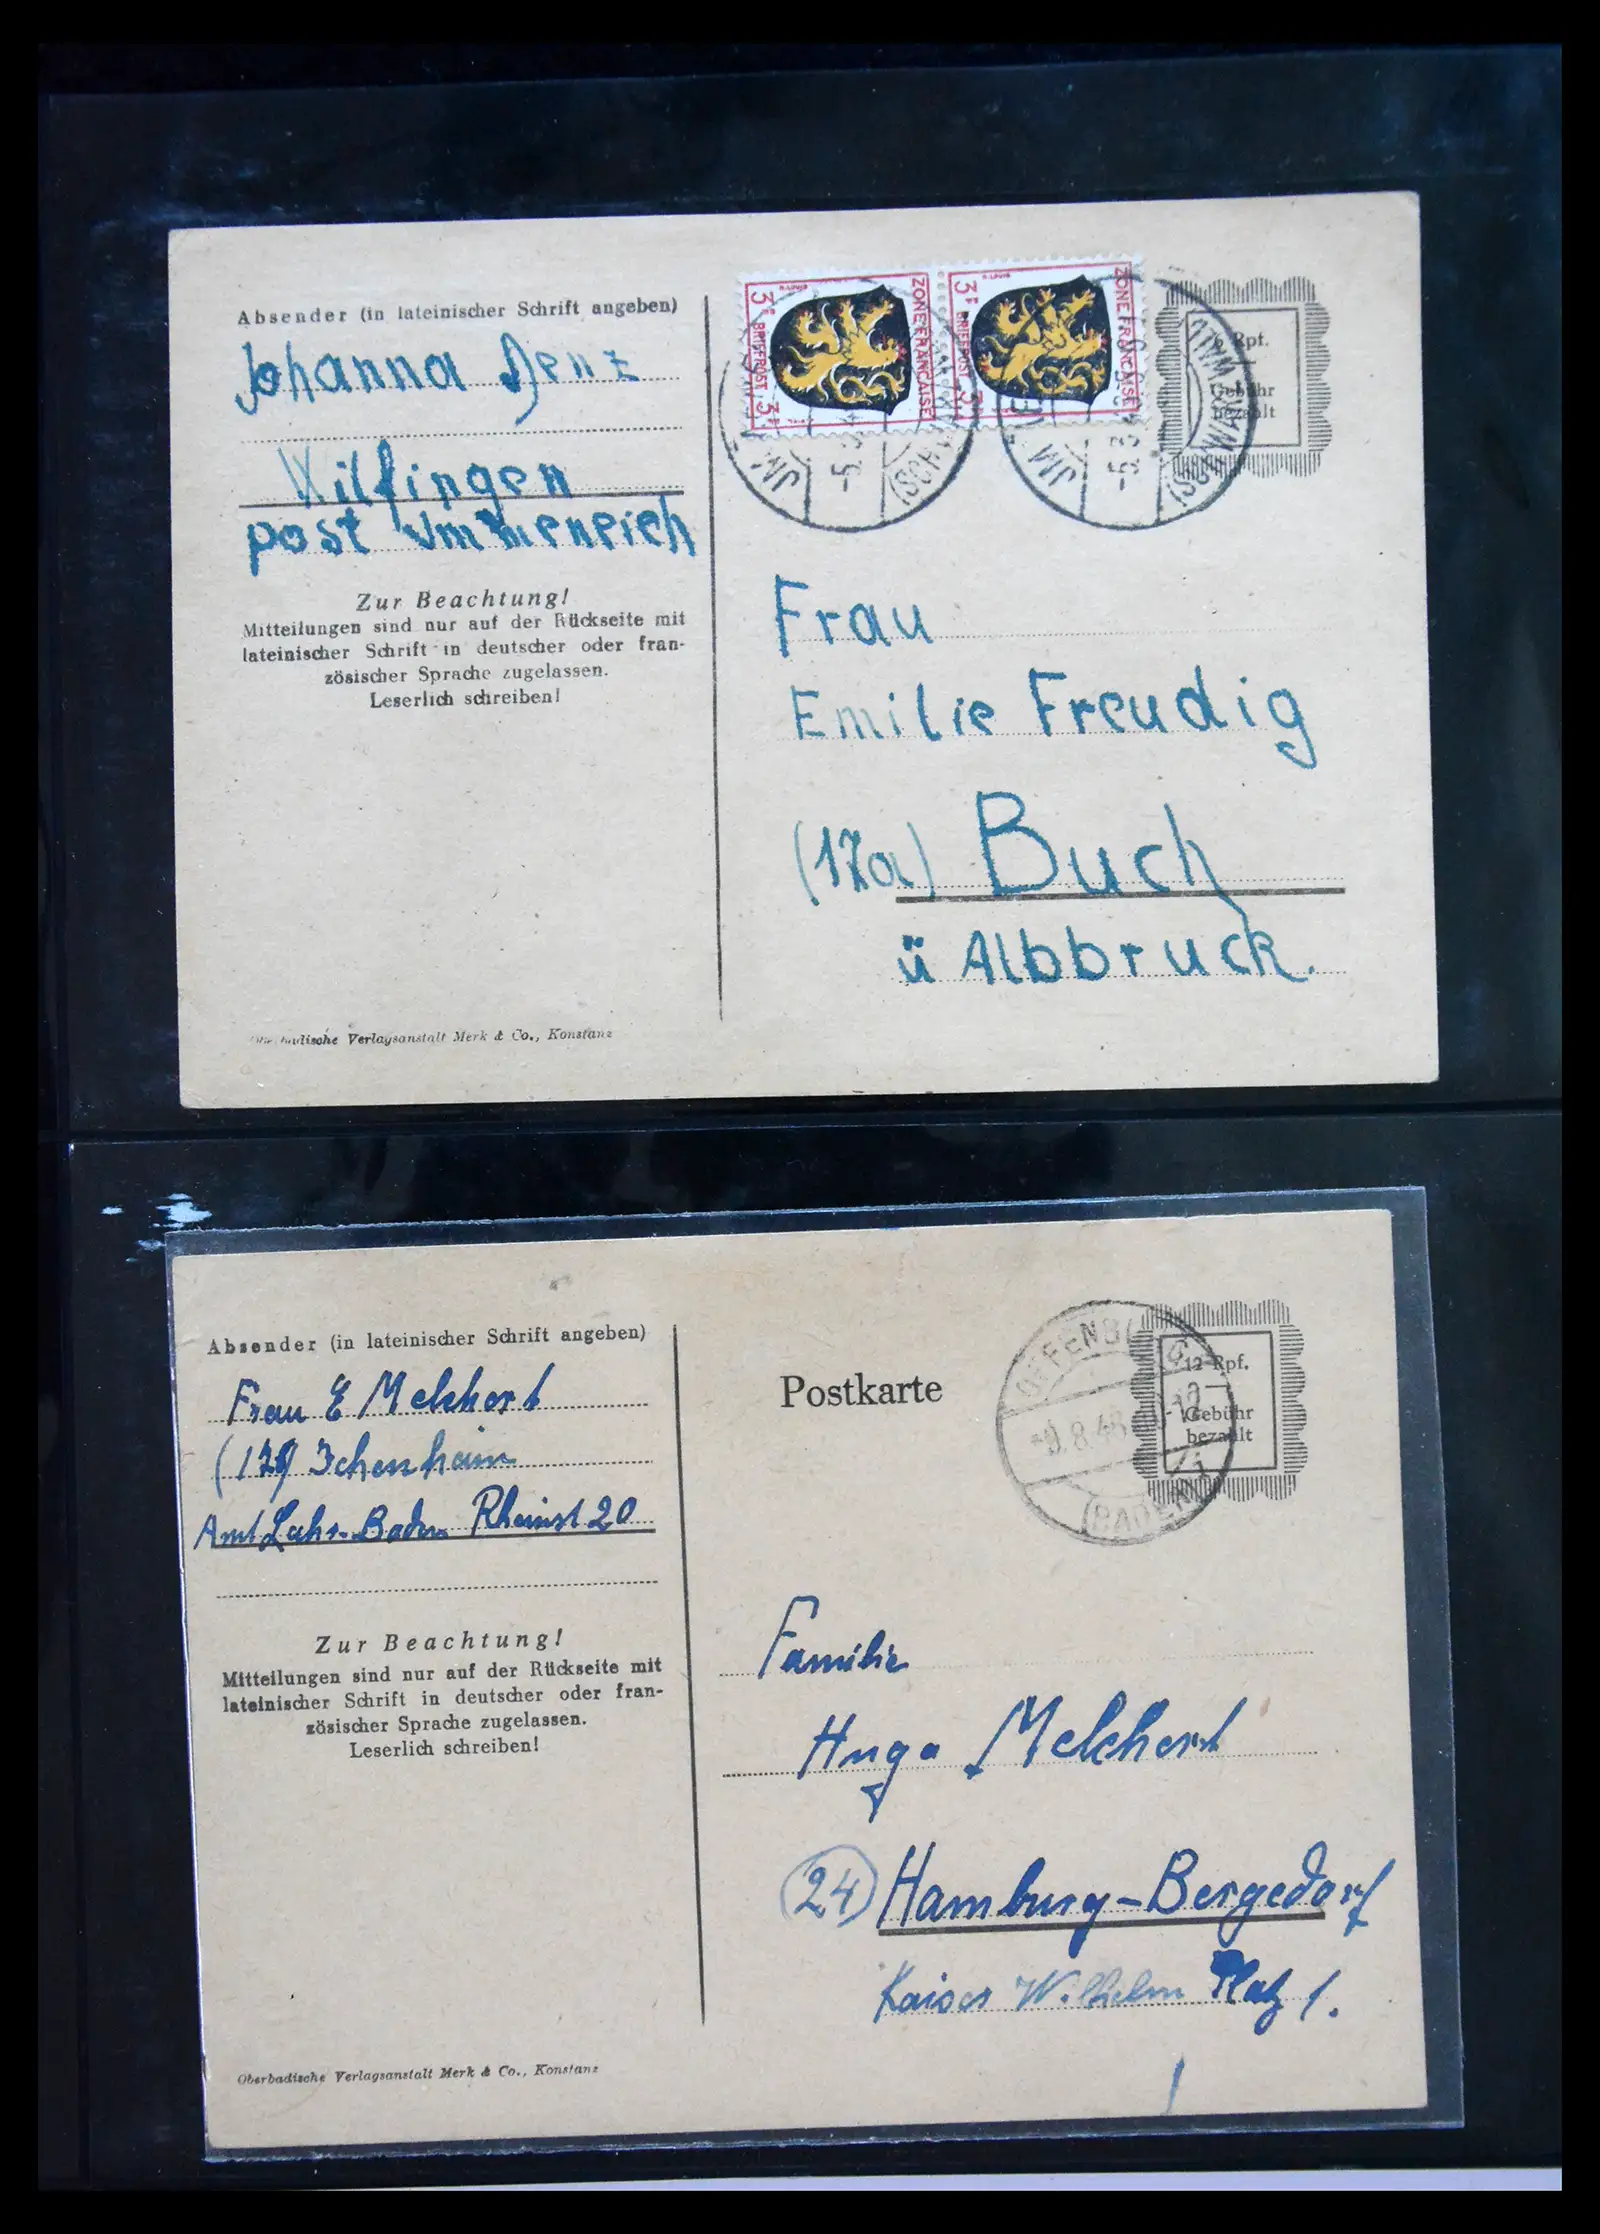 Absender (in lateinischer Schrift angeben)
Johanna Denz
Wilfingen
post Immeneich
Zur Beachtung!
Mitteilungen sind nur auf der Rückseite mit
lateinischer Schrift in deutscher oder fran-
zösischer Sprache zugelassen.
Leserlich schreiben!
Oberbadische Verlagsanstalt Merk & Co., Konstanz
ZONE FRANÇAISE
3 F BRIEFPOST 3 F
ZONE FRANÇAISE
3 F BRIEFPOST 3 F
6 Rpf.
Gebühr
bezahlt
Frau
Emilie Freudig
(17a) Buch
ü Albbruck.
Absender (in lateinischer Schrift angeben)
Frau E Melchert
Ichenheim
Amt Lahr-Baden Rheinst 20
Zur Beachtung!
Mitteilungen sind nur auf der Rückseite mit
lateinischer Schrift in deutscher oder fran-
zösischer Sprache zugelassen.
Leserlich schreiben!
Oberbadische Verlagsanstalt Merk & Co., Konstanz
Postkarte
OFFENBURG
8.48
(BADEN)
12 Rpf.
Gebühr
bezahlt
Familie
Hugo Melchert
24 Hamburg-Bergedorf
Kaiser Wilhelm Platz 1.